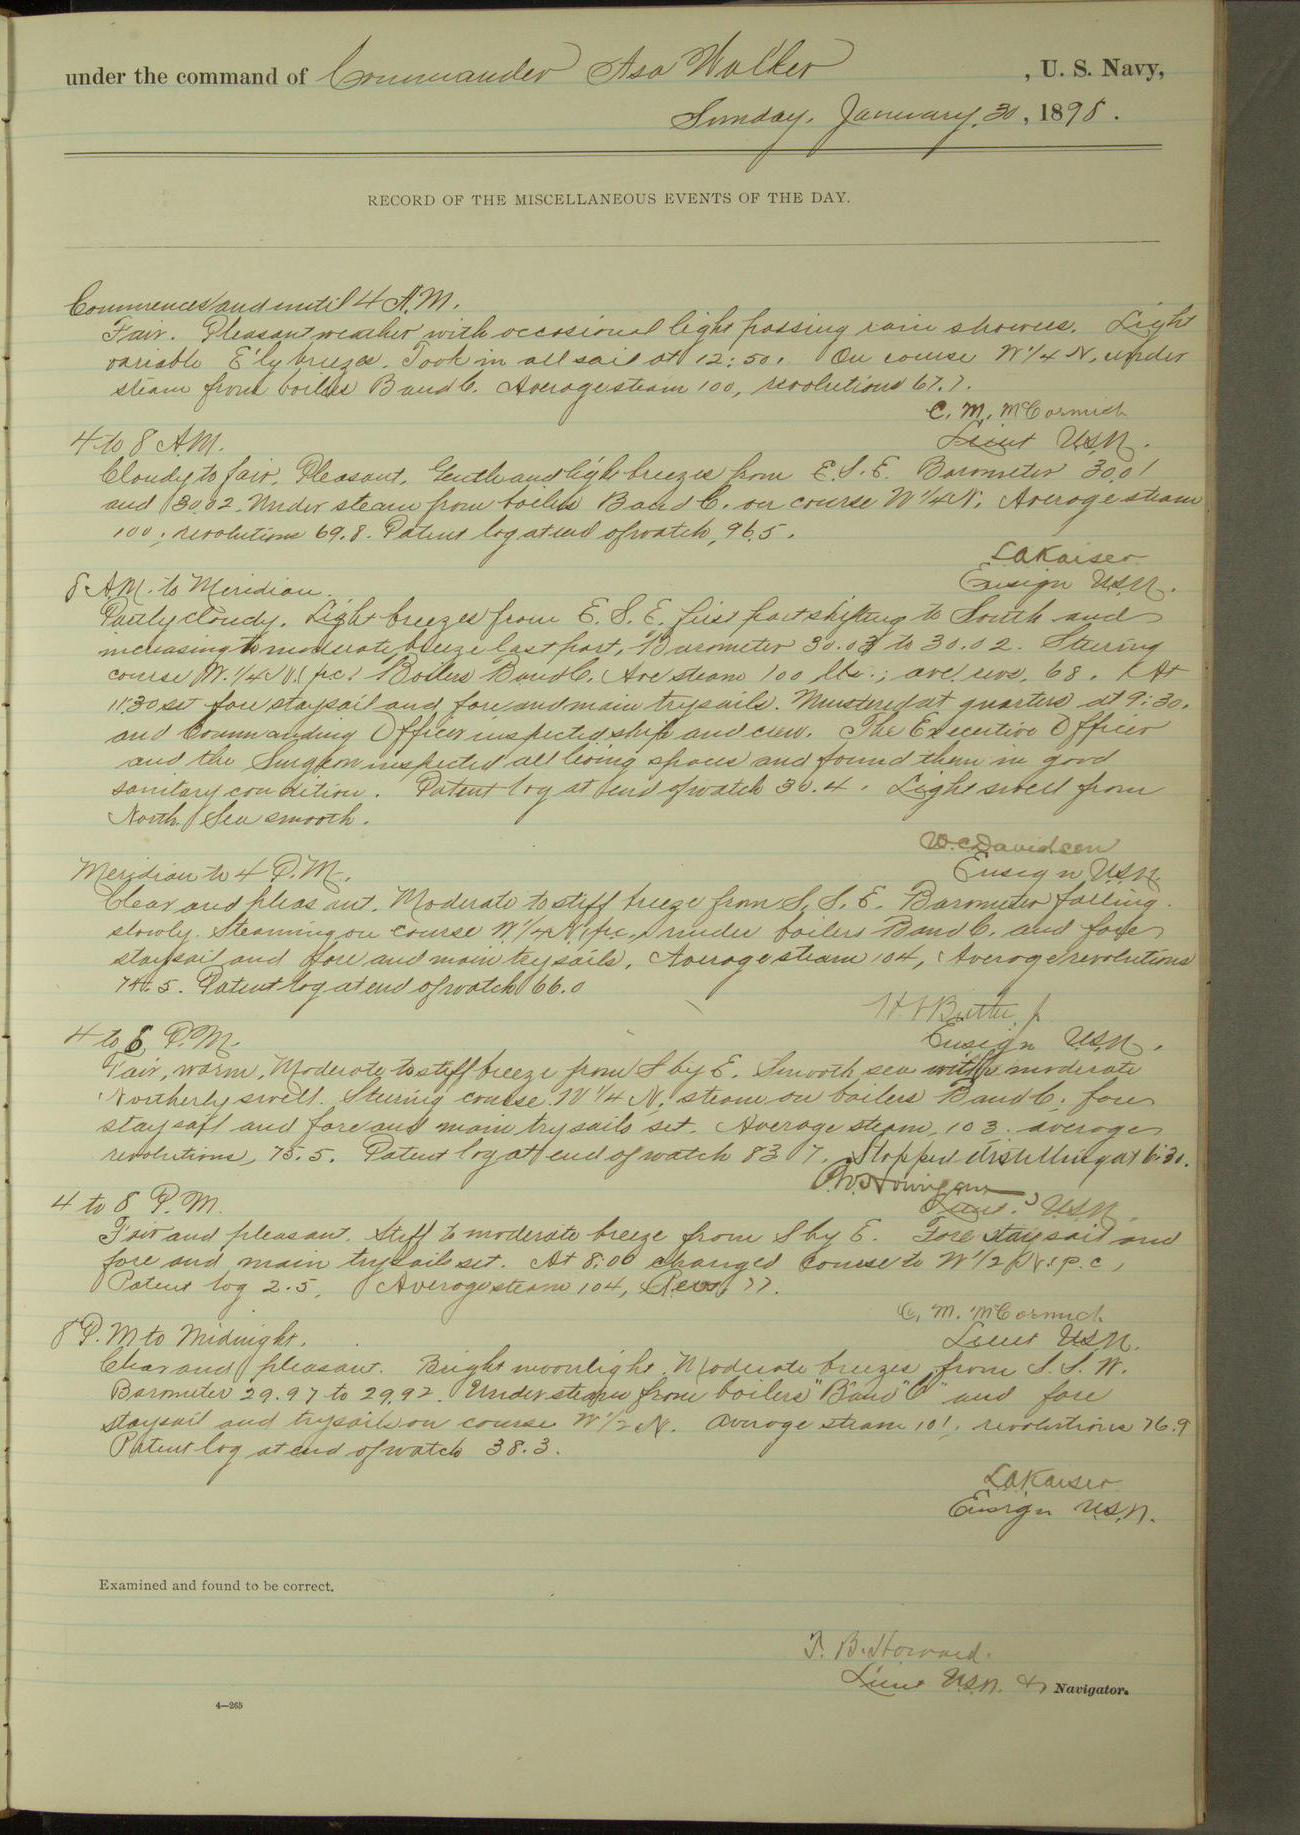 under the command of Commander Asa Walker, U. S. Navy,
Sunday, January, 30, 1898.
RECORD OF THE MISCELLANEOUS EVENTS OF THE DAY.
Commences and until 4 A.M.
Fair. Pleasant weather with occasional light passing rain showers. Light
variable E'ly breezes. Took in all sail at 12:50. On course W 1/4 N. under
steam from boilers B and C. Average steam 100, revolutions 67.7.
C. M. McCormick
Lieut U.S.N.
4 to 8 A.M.
Cloudy to fair. Pleasant. Gentle and light breezes from E.S.E. Barometer 30.01
and 30.02. Under steam from boilers B and C. on course W 1/4 N. Average steam
100; revolutions 69.8. Patent log at end of watch, 96.5.
L A Kaiser
Ensign U.S.N.
8 A.M. to Meridian.
Partly cloudy. Light breezes from E. S. E. first part shifting to South and
increasing to moderate breeze last part. Barometer 30.03 to 30.02. Steering
course W. 1/4 N. (p.c.) Boilers B and C. Ave steam 100 lbs.; ave. revs. 68. At
11:30 set fore staysail and fore and main trysails. Mustered at quarters at 9:30.
and Commanding Officer inspected ship and crew. The Executive Officer
and the Surgeon inspected all living spaces and found them in good
sanitary condition. Patent log at end of watch 30.4. Light swell from
North. Sea smooth.
W. C. Davidson
Ensign U.S.N.
Meridian to 4 P.M.
Clear and pleasant. Moderate to stiff breeze from S. S. E. Barometer falling
slowly. Steaming on course W. 1/4 N. p.c., under boilers B and C. and fore
staysail and fore and main trysails. Average steam 104, Average revolutions
74.5. Patent log at end of watch 66.0
Ensign U.S.N.
4 to 6 P.M.
Fair, warm, Moderate to stiff breeze from S by E. Smooth sea with moderate
Northerly swell. Steering course W 1/4 N; steam on boilers B and C; fore
staysail and fore and main trysails set. Average steam, 103. average
revolutions, 75.5. Patent log at end of watch 83.7. Stopped distilling at 6:30.
Lieut. U.S.N.
4 to 8 P.M.
Fair and pleasant. Stiff to moderate breeze from S by E. Fore staysail and
fore and main trysails set. At 8:00 changed course to W 1/2 N. p.c,
Patent log 2.5. Average steam 104, Revs. 77.
C. M. McCormick
Lieut U.S.N.
8 P.M to Midnight.
Clear and pleasant. Bright moonlight. Moderate breezes from S. S. W.
Barometer 29.97 to 29.92. Under steam from boilers "B" and "C" and fore
staysail and trysails on course W 1/2 N. Average steam 101, revolutions 76.9
Patent log at end of watch 38.3.
L A Kaiser
Ensign U.S.N.
Examined and found to be correct.
T. B. Howard.
Lieut U.S.N. & Navigator.
4—265